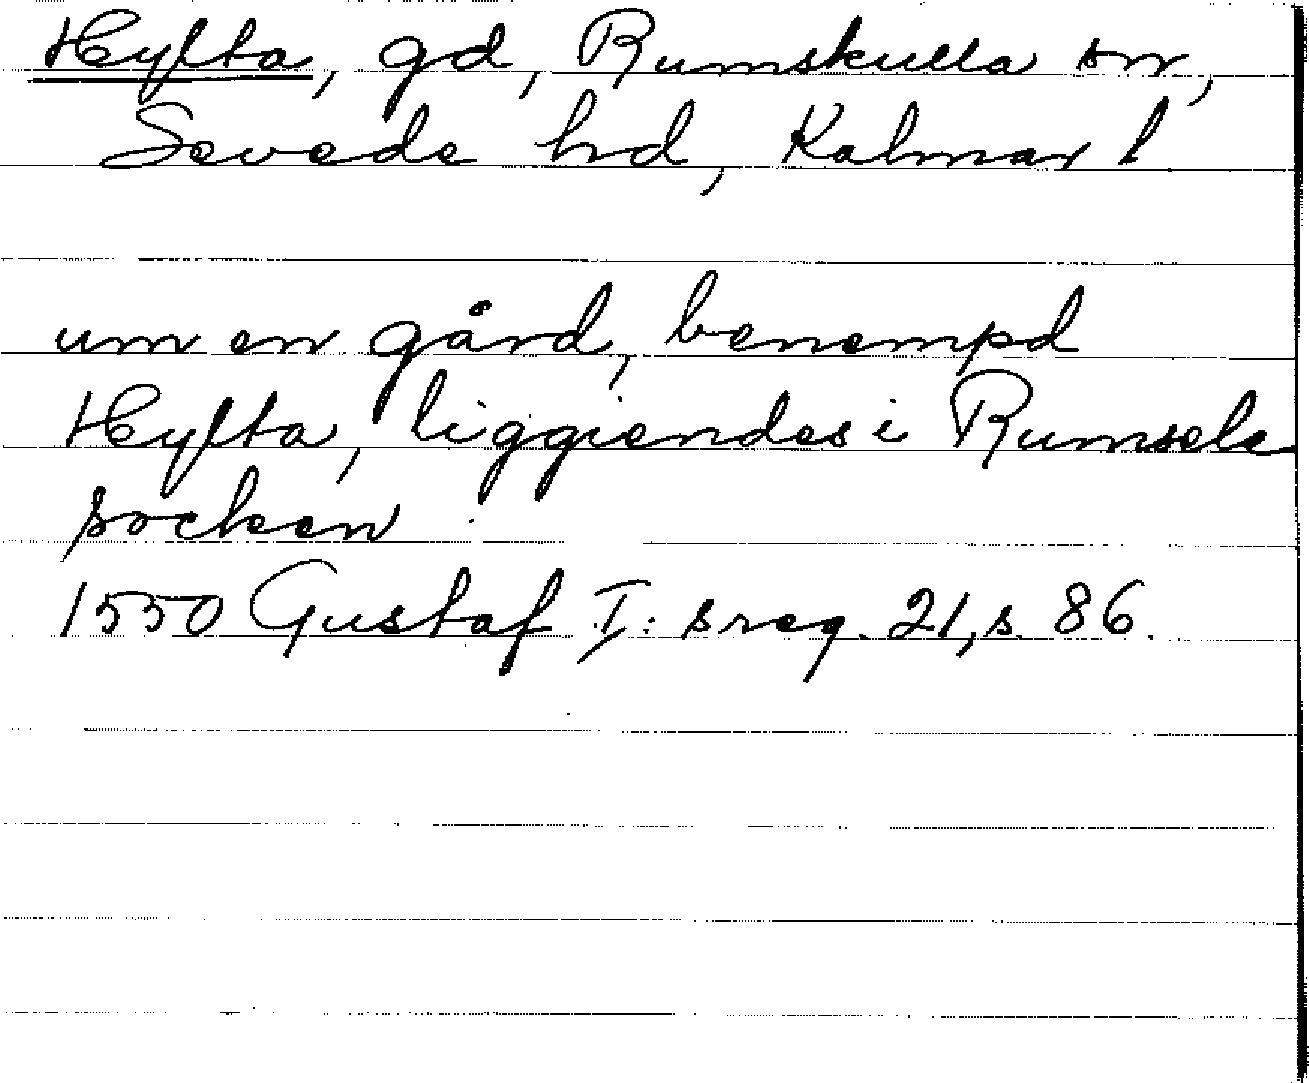 Hylta, gd, Rumskulla sn,
Sevede hd, Kalmar l
um en gård, benempd
Hylta, liggiendes i Rumsele
socken
1550 Gustaf I: s reg. 21, s. 86.